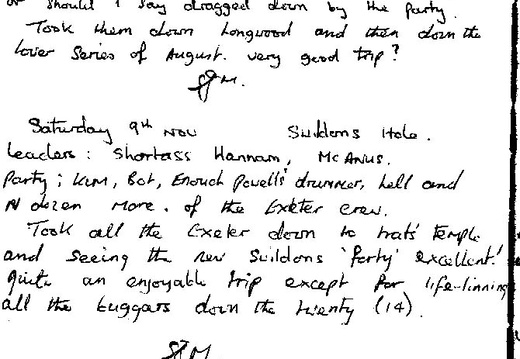 or should I say dragged down by the party.
Took them down Longwood and then down the
lower Series of August. very good trip?
SJM.
Saturday 9th Nov Swildons Hole.
Leaders: Shortass Hannam, McAnus.
Party; Kim, Bot, Enouch Powells' drummer, hell and
N dozen more. of the Exeter crew.
Took all the Exeter down to trats' temple
and seeing the new Swildons 'forty' excellent!
quite an enjoyable trip except for life-lining
all the buggars down the twenty (14).
SJM